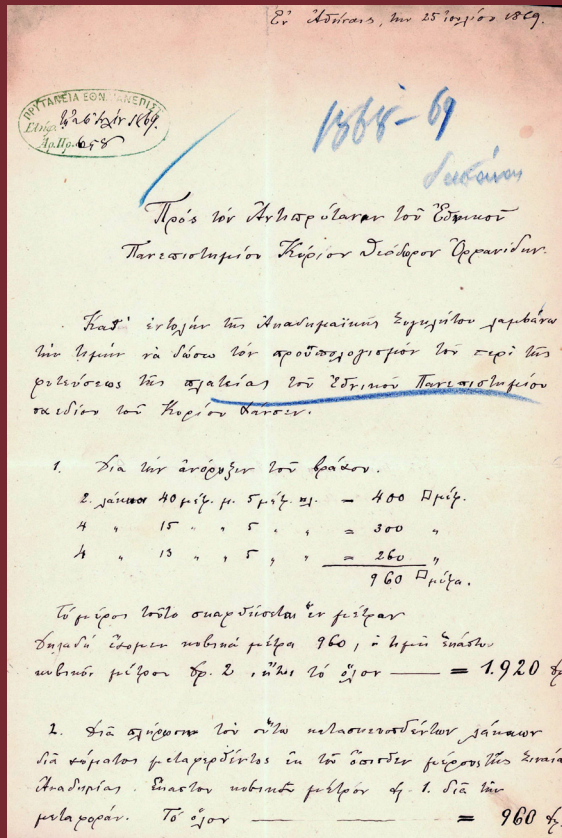 Ἐν Ἀθήναις, την 25 Ιουλίου 1869.
ΠΡΥΤΑΝΕΙΑ ΕΘΝ. ΠΑΝΕΠΙΣΤ
1869.
Ἀρ.Πρ. 658
1868-69
Πρός τόν Ἀντιπρύτανιν τοῦ Ἐθνικοῦ
Πανεπιστημίου Κύριον Θεόδωρον Ὀρφανίδην.
Κατ' ἐντολήν τῆς Ἀκαδημαϊκῆς Συγκλήτου λαμβάνω
τήν τιμήν νά δώσω τόν προϋπολογισμόν τοῦ περί τῆς
φυτεύσεως τῆς πλατείας τοῦ Ἐθνικοῦ Πανεπιστημίου
σχεδίου τοῦ Κυρίου Χάνσεν.
1. Διά τήν ἀνόρυξιν τοῦ βράχου.
2. λάκκοι 40 μέτρ. μ. 5 μέτρ. πλ. = 400 □ μέτρ.
4 " 15 " " 5 " " = 300 "
4 " 13 " " 5 " " = 260 "
960 □ μέτρα.
Τό μέρος τοῦτο σκαφθήσεται ἕν μέτρον
δηλαδή ἔχομεν κυβικά μέτρα 960, ἡ τιμή ἑκάστου
κυβικοῦ μέτρου δρ. 2, ἤτοι τό ὅλον — = 1.920 δρ
2. Διά πλήρωσιν τῶν οὕτω κατασκευασθέντων λάκκων
διά χώματος μεταφερθέντος ἐκ τοῦ ὄπισθεν μέρους τῆς Σιναία
Ἀκαδημίας. Ἕκαστον κυβικόν μέτρον δρ. 1. διά τήν
μεταφοράν. Τό ὅλον — — — = 960 δρ.